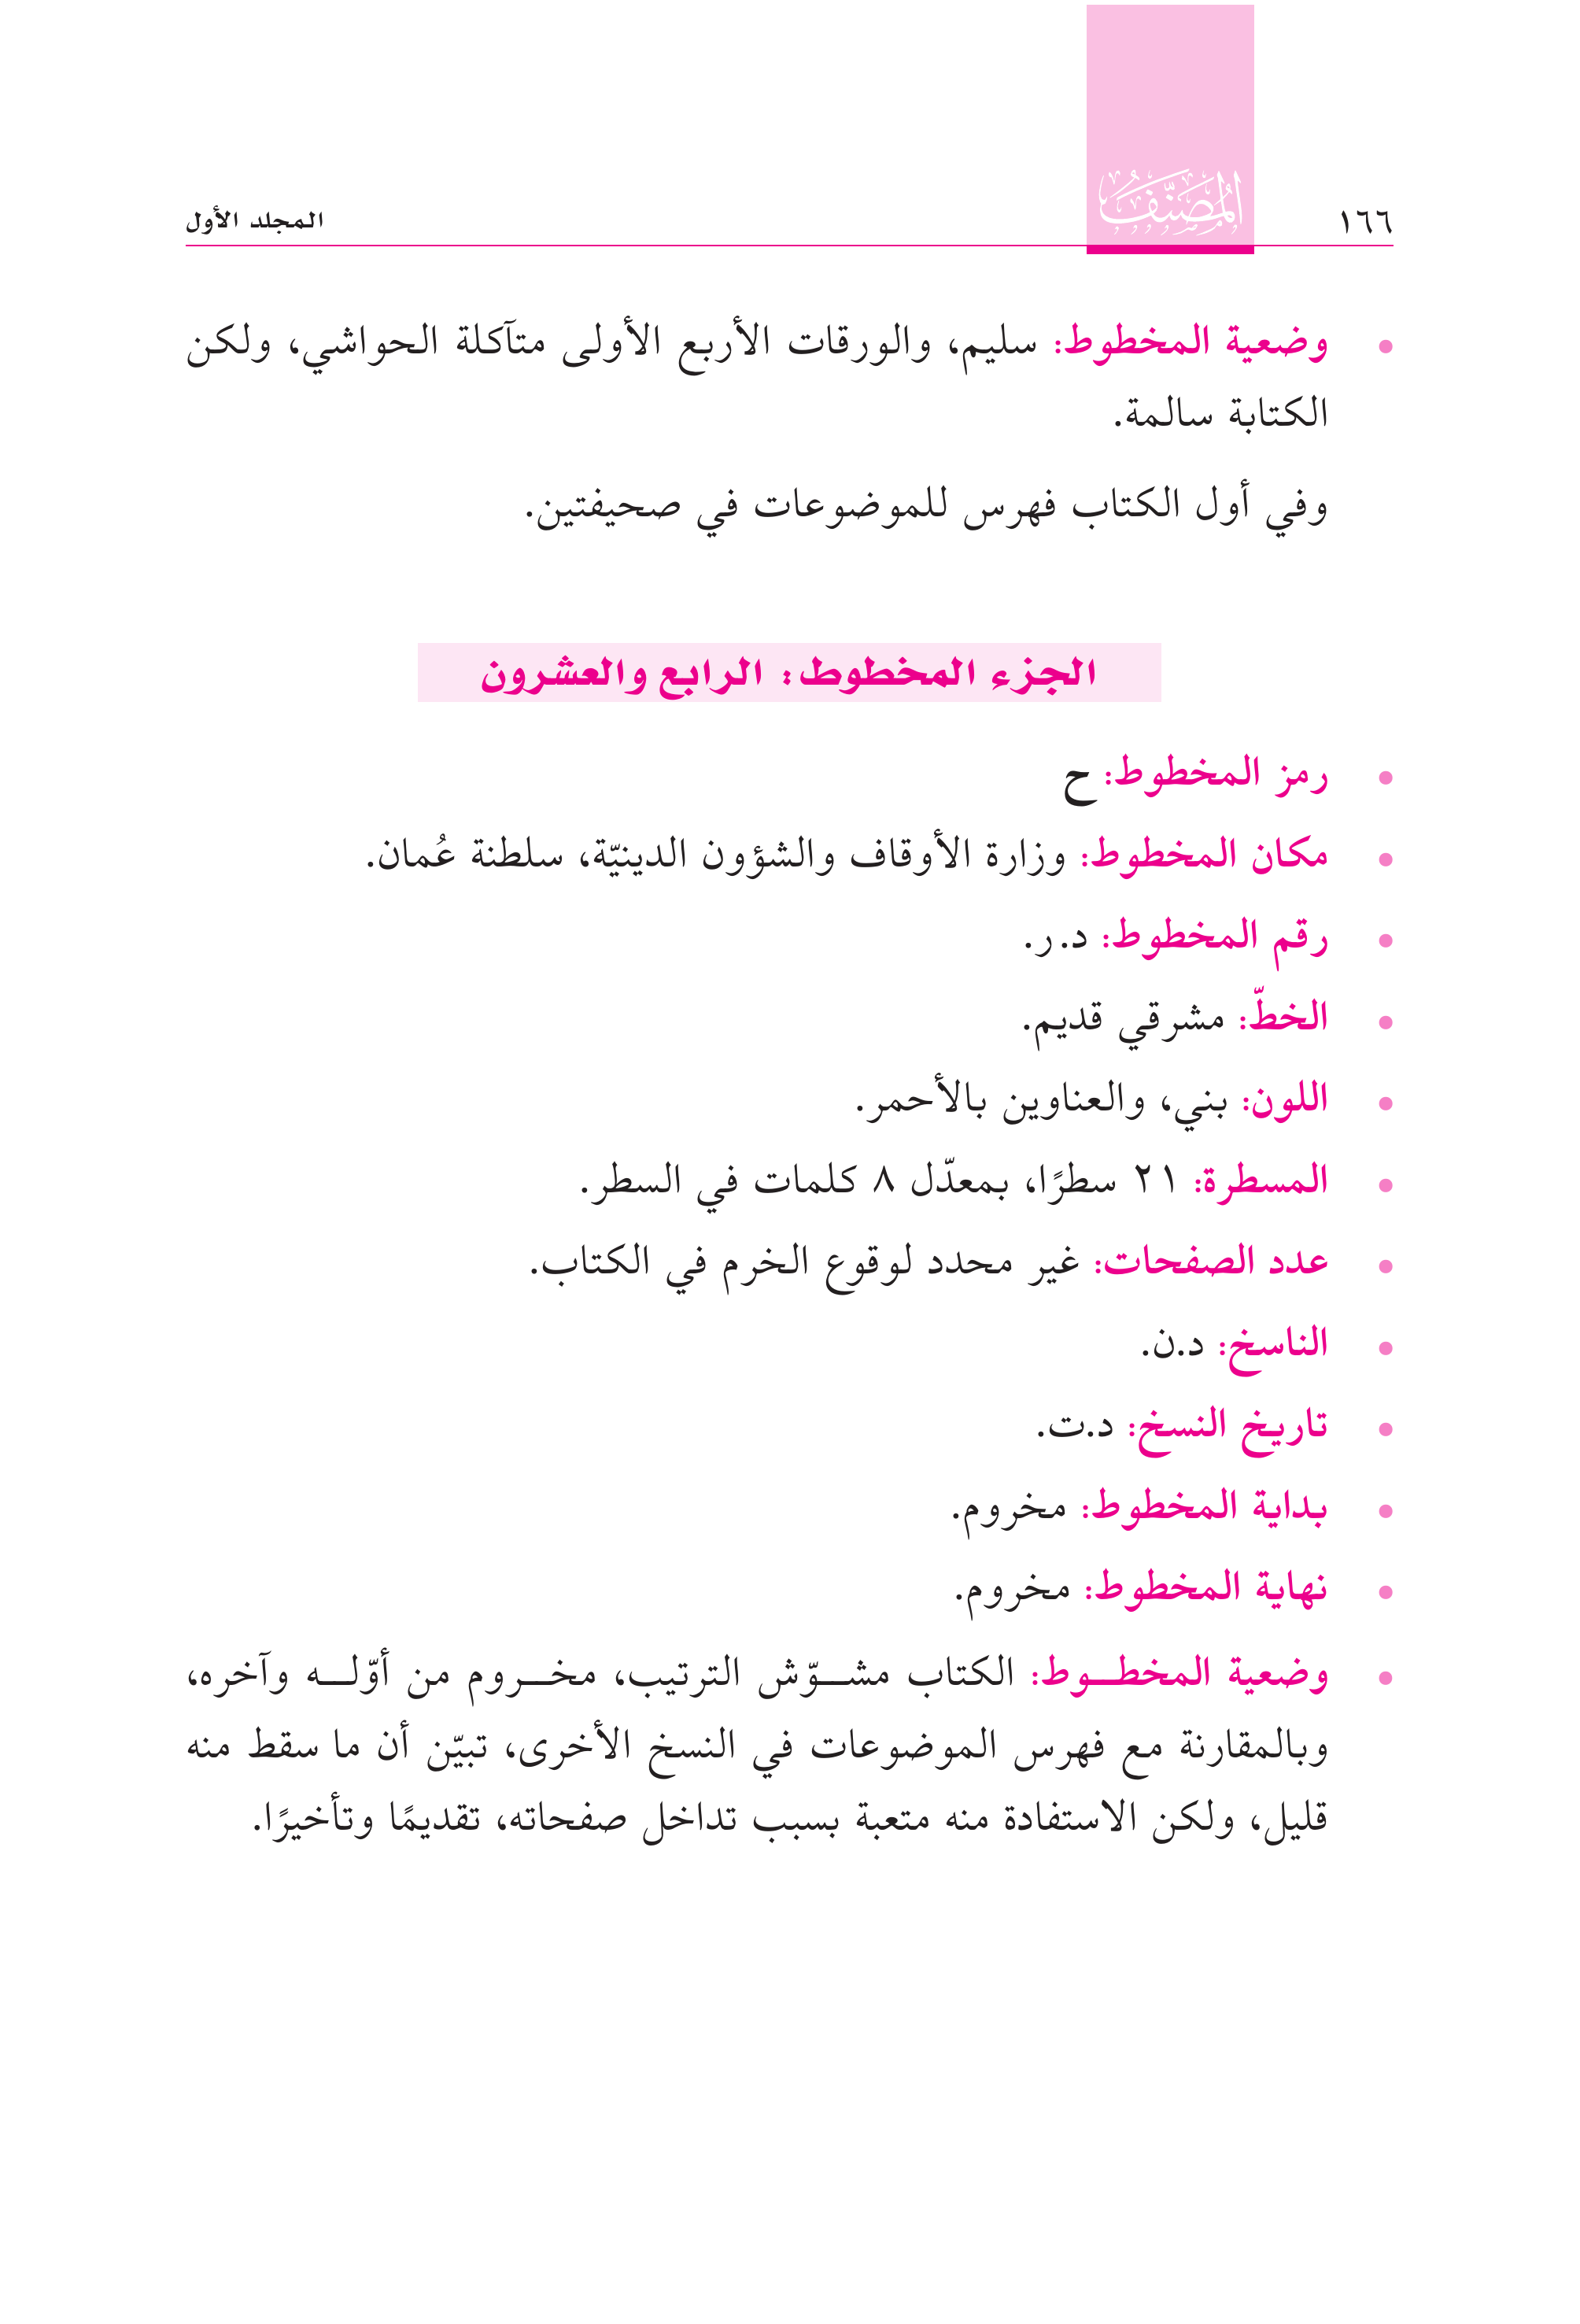 ١٦٦
المصنف
المجلد الأول
• وضعية المخطوط: سليم، والورقات الأربع الأولى متآكلة الحواشي، ولكن
الكتابة سالمة.
وفي أول الكتاب فهرس للموضوعات في صحيفتين.
الجزء المخطوط: الرابع والعشرون
• رمز المخطوط: ح
• مكان المخطوط: وزارة الأوقاف والشؤون الدينيّة، سلطنة عُمان.
• رقم المخطوط: د.ر.
• الخطّ: مشرقي قديم.
• اللون: بني، والعناوين بالأحمر.
• المسطرة: ٢١ سطرًا، بمعدّل ٨ كلمات في السطر.
• عدد الصفحات: غير محدد لوقوع الخرم في الكتاب.
• الناسخ: د.ن.
• تاريخ النسخ: د.ت.
• بداية المخطوط: مخروم.
• نهاية المخطوط: مخروم.
• وضعية المخطـوط: الكتاب مشـوّش الترتيب، مخـروم من أوّلـه وآخره،
وبالمقارنة مع فهرس الموضوعات في النسخ الأخرى، تبيّن أن ما سقط منه
قليل، ولكن الاستفادة منه متعبة بسبب تداخل صفحاته، تقديمًا وتأخيرًا.